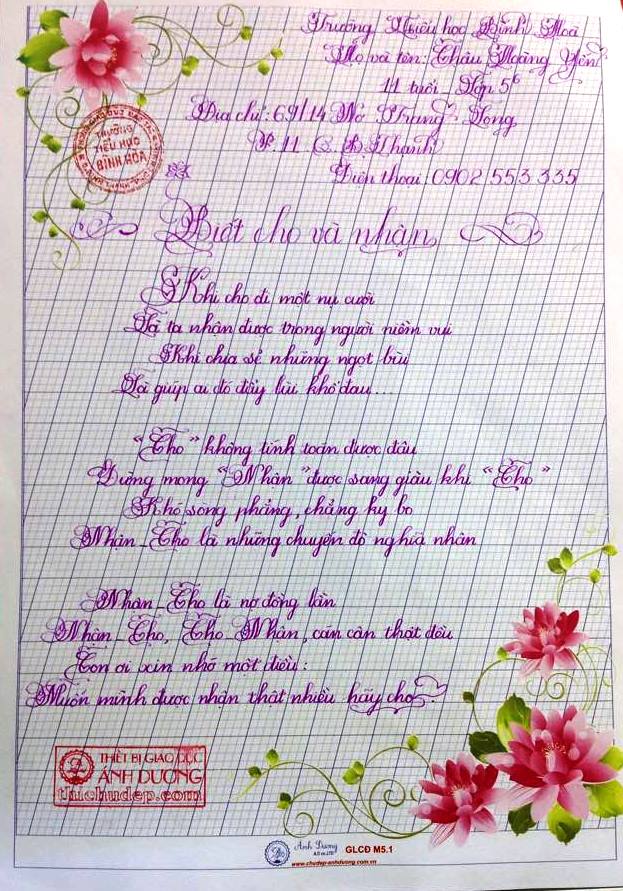 Trường Tiểu học Bình Hoà
Họ và tên: Châu Hoàng Yến
11 tuổi - Lớp 5⁶
Địa chỉ: 69/14 Nơ Trang Long
P. 11 Q. B.Thanh
Điện thoại: 0902 553 335
TRƯỜNG
TIỂU HỌC
BÌNH HÒA
Biết cho và nhận
Khi cho đi một nụ cười
Là ta nhận được trong người niềm vui
Khi chia sẻ những ngọt bùi
Là giúp ai đó đẩy lùi khổ đau...
"Cho" không tính toán được đâu
Đừng mong "Nhận" được sang giàu khi "Cho"
Khó song phẳng, chẳng ky bo
Nhận _ Cho là những chuyến đò nghĩa nhân
Nhận _ Cho là nợ đồng lần
Nhận _ Cho, Cho _ Nhận, cán cân thật đều
Con ơi xin nhớ một điều:
Muốn mình được nhận thật nhiều hãy cho.
THIẾT BỊ GIÁO DỤC
ÁNH DƯƠNG
thichudep.com
Anh Dương
GLCĐ M5.1
www.chudep-anhduong.com.vn